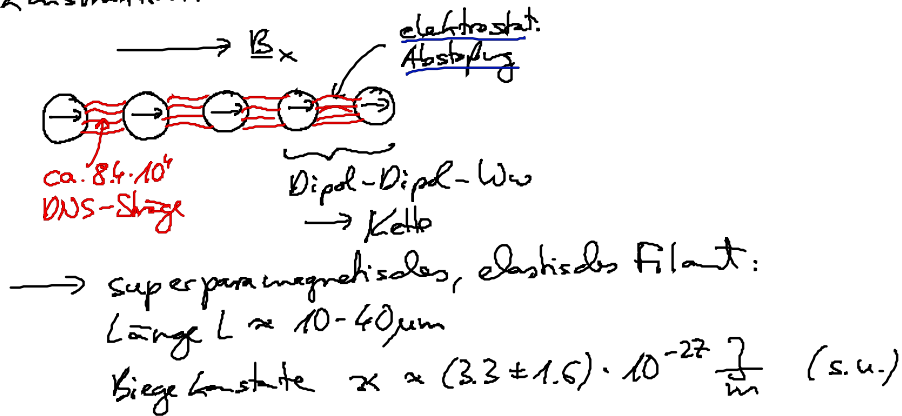 B_x
elektrostat.
Abstoßung
ca. 8.4·10⁴
DNS-Stränge
Dipol-Dipol-Ww
→ Kette
→ superparamagnetisches, elastisches Filament:
Länge L ≈ 10-40µm
Biegekonstante ϰ ≈ (3.3 ± 1.6) · 10⁻²⁷ J/m (s.u.)